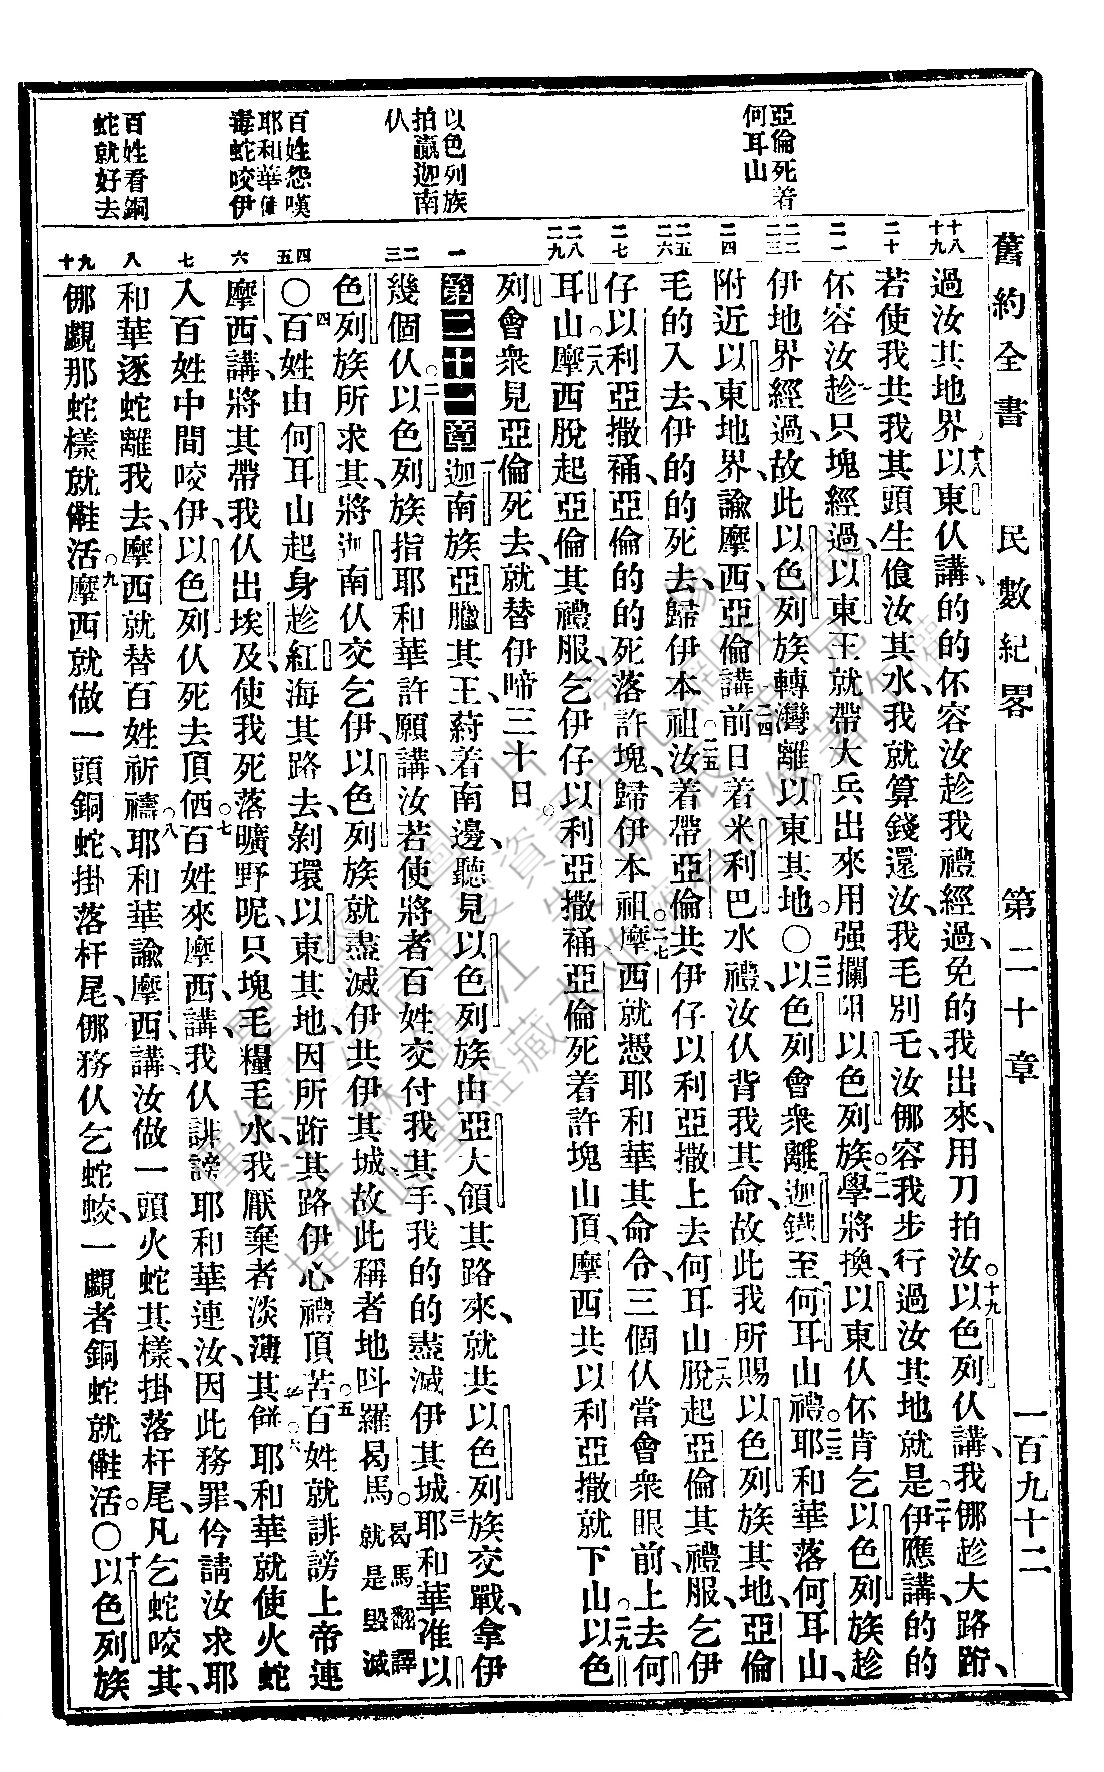 舊約全書　民數紀畧　第二十章　一百九十二
亞倫死着
何耳山
以色列族
拍贏迦南
仈
百姓怨嘆
耶和華使
毒蛇咬伊
百姓看銅
蛇就好去
十八
十九
二十
二一
二二
二三
二四
二五
二六
二七
二八
二九
一
二
三
四
五
六
七
八
九
十
過汝其地界十八以東仈講、的的伓容汝趁我禮經過、免的我出來、用刀拍汝。十九以色列仈講、我㑚趁大路跡、
若使我共我其頭生飱汝其水、我就算錢還汝、我毛別乇、汝㑚容我步行過汝其地就是。二十伊應講、的的
伓容汝趁只塊經過、以東王就帶大兵出來用强攔阻以色列族。二一學將換、以東仈伓肯乞以色列族趁
伊地界經過、故此以色列族轉灣離以東其地。○二二以色列會衆離迦鐵至何耳山禮。二三耶和華落何耳山、
附近以東地界、諭摩西亞倫講、二四前日着米利巴水禮、汝仈背我其命、故此我所賜以色列族其地、亞倫
毛的入去、伊的的死去歸伊本祖。二五汝着帶亞倫共伊仔以利亞撒上去何耳山、二六脫起亞倫其禮服、乞伊
仔以利亞撒𧙕、亞倫的的死落許塊、歸伊本祖。二七摩西就憑耶和華其命令、三個仈當會衆眼前、上去何
耳山。二八摩西脫起亞倫其禮服、乞伊仔以利亞撒𧙕、亞倫死着許塊山頂、摩西共以利亞撒就下山。二九以色
列會衆見亞倫死去、就替伊啼三十日。
第二十一章 一迦南族亞臘其王、蒔着南邊、聽見以色列族由亞大領其路來、就共以色列族交戰、拿伊
幾個仈。二以色列族指耶和華許願、講、汝若使將者百姓交付我其手、我的的盡滅伊其城。三耶和華准以
色列族所求其、將迦南仈交乞伊、以色列族就盡滅伊共伊其城、故此稱者地呌羅曷馬。曷馬翻譯就是毁滅
○四百姓由何耳山起身趁紅海其路去、剝環以東其地、因所跡其路、伊心禮頂苦。五百姓就誹謗上帝連
摩西、講、將其帶我仈出埃及、使我死落曠野呢、只塊毛糧毛水、我厭棄者淡薄其餅。六耶和華就使火蛇
入百姓中間咬伊、以色列仈死去頂価。七百姓來摩西講、我仈誹謗耶和華連汝、因此務罪、仱請汝求耶
和華逐蛇離我去、摩西就替百姓祈禱。八耶和華諭摩西講、汝做一頭火蛇其樣、掛落杆尾、凡乞蛇咬其、
㑚覷那蛇樣就儺活。九摩西就做一頭銅蛇、掛落杆尾、㑚務仈乞蛇蛟、一覷者銅蛇就儺活。○十以色列族